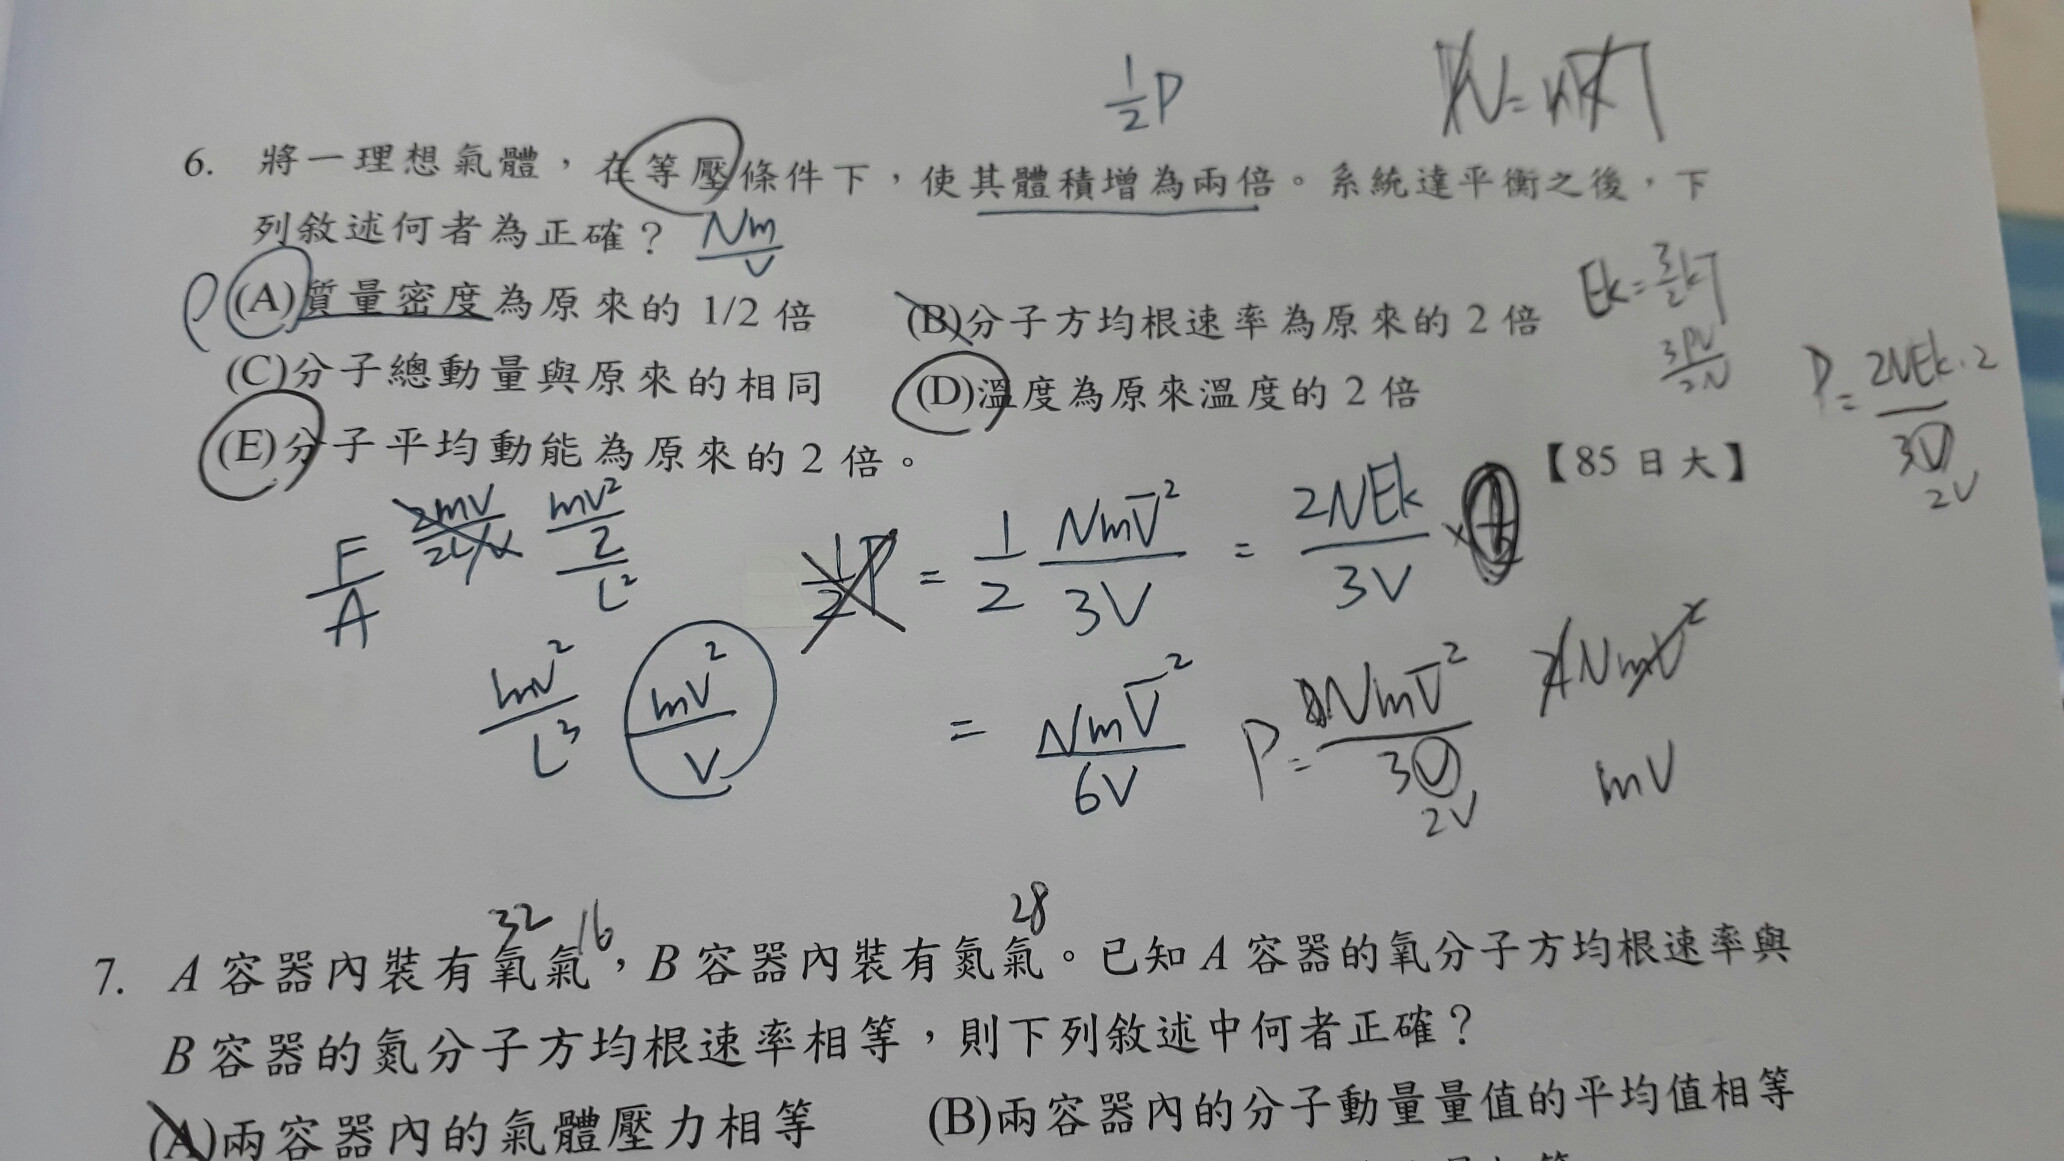 1/2 P
PV=nRT
6. 將一理想氣體，在等壓條件下，使其體積增為兩倍。系統達平衡之後，下
列敘述何者為正確？ Nm/V
ρ (A)質量密度為原來的 1/2 倍 (B)分子方均根速率為原來的 2 倍
Ek=3/2 kT
3PV/2N
(C)分子總動量與原來的相同 (D)溫度為原來溫度的 2 倍
P=2NEk·2/3V
2V
(E)分子平均動能為原來的 2 倍。 【85 日大】
F/A mv²/2/L²
= 1/2 Nmv̄²/3V = 2NEk/3V ×
mv²/L³ mv²/V
= Nmv̄²/6V P= Nmv̄²/3V
2V
mv
32 16 28
7. A 容器內裝有氧氣，B 容器內裝有氮氣。已知 A 容器的氧分子方均根速率與
B 容器的氮分子方均根速率相等，則下列敘述中何者正確？
(A)兩容器內的氣體壓力相等 (B)兩容器內的分子動量量值的平均值相等